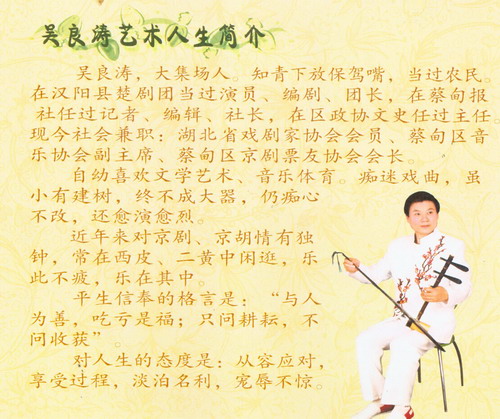 吴良涛艺术人生简介
吴良涛，大集场人。知青下放保驾嘴，当过农民。
在汉阳县楚剧团当过演员、编剧、团长，在蔡甸报
社任过记者、编辑、社长，在区政协文史任过主任。
现今社会兼职：湖北省戏剧家协会会员、蔡甸区音
乐协会副主席、蔡甸区京剧票友协会会长。
自幼喜欢文学艺术、音乐体育。痴迷戏曲，虽
小有建树，终不成大器，仍痴心
不改，还愈演愈烈。
近年来对京剧、京胡情有独
钟，常在西皮、二黄中闲逛，乐
此不疲，乐在其中。
平生信奉的格言是：“与人
为善，吃亏是福；只问耕耘，不
问收获”。
对人生的态度是：从容应对，
享受过程，淡泊名利，宠辱不惊。